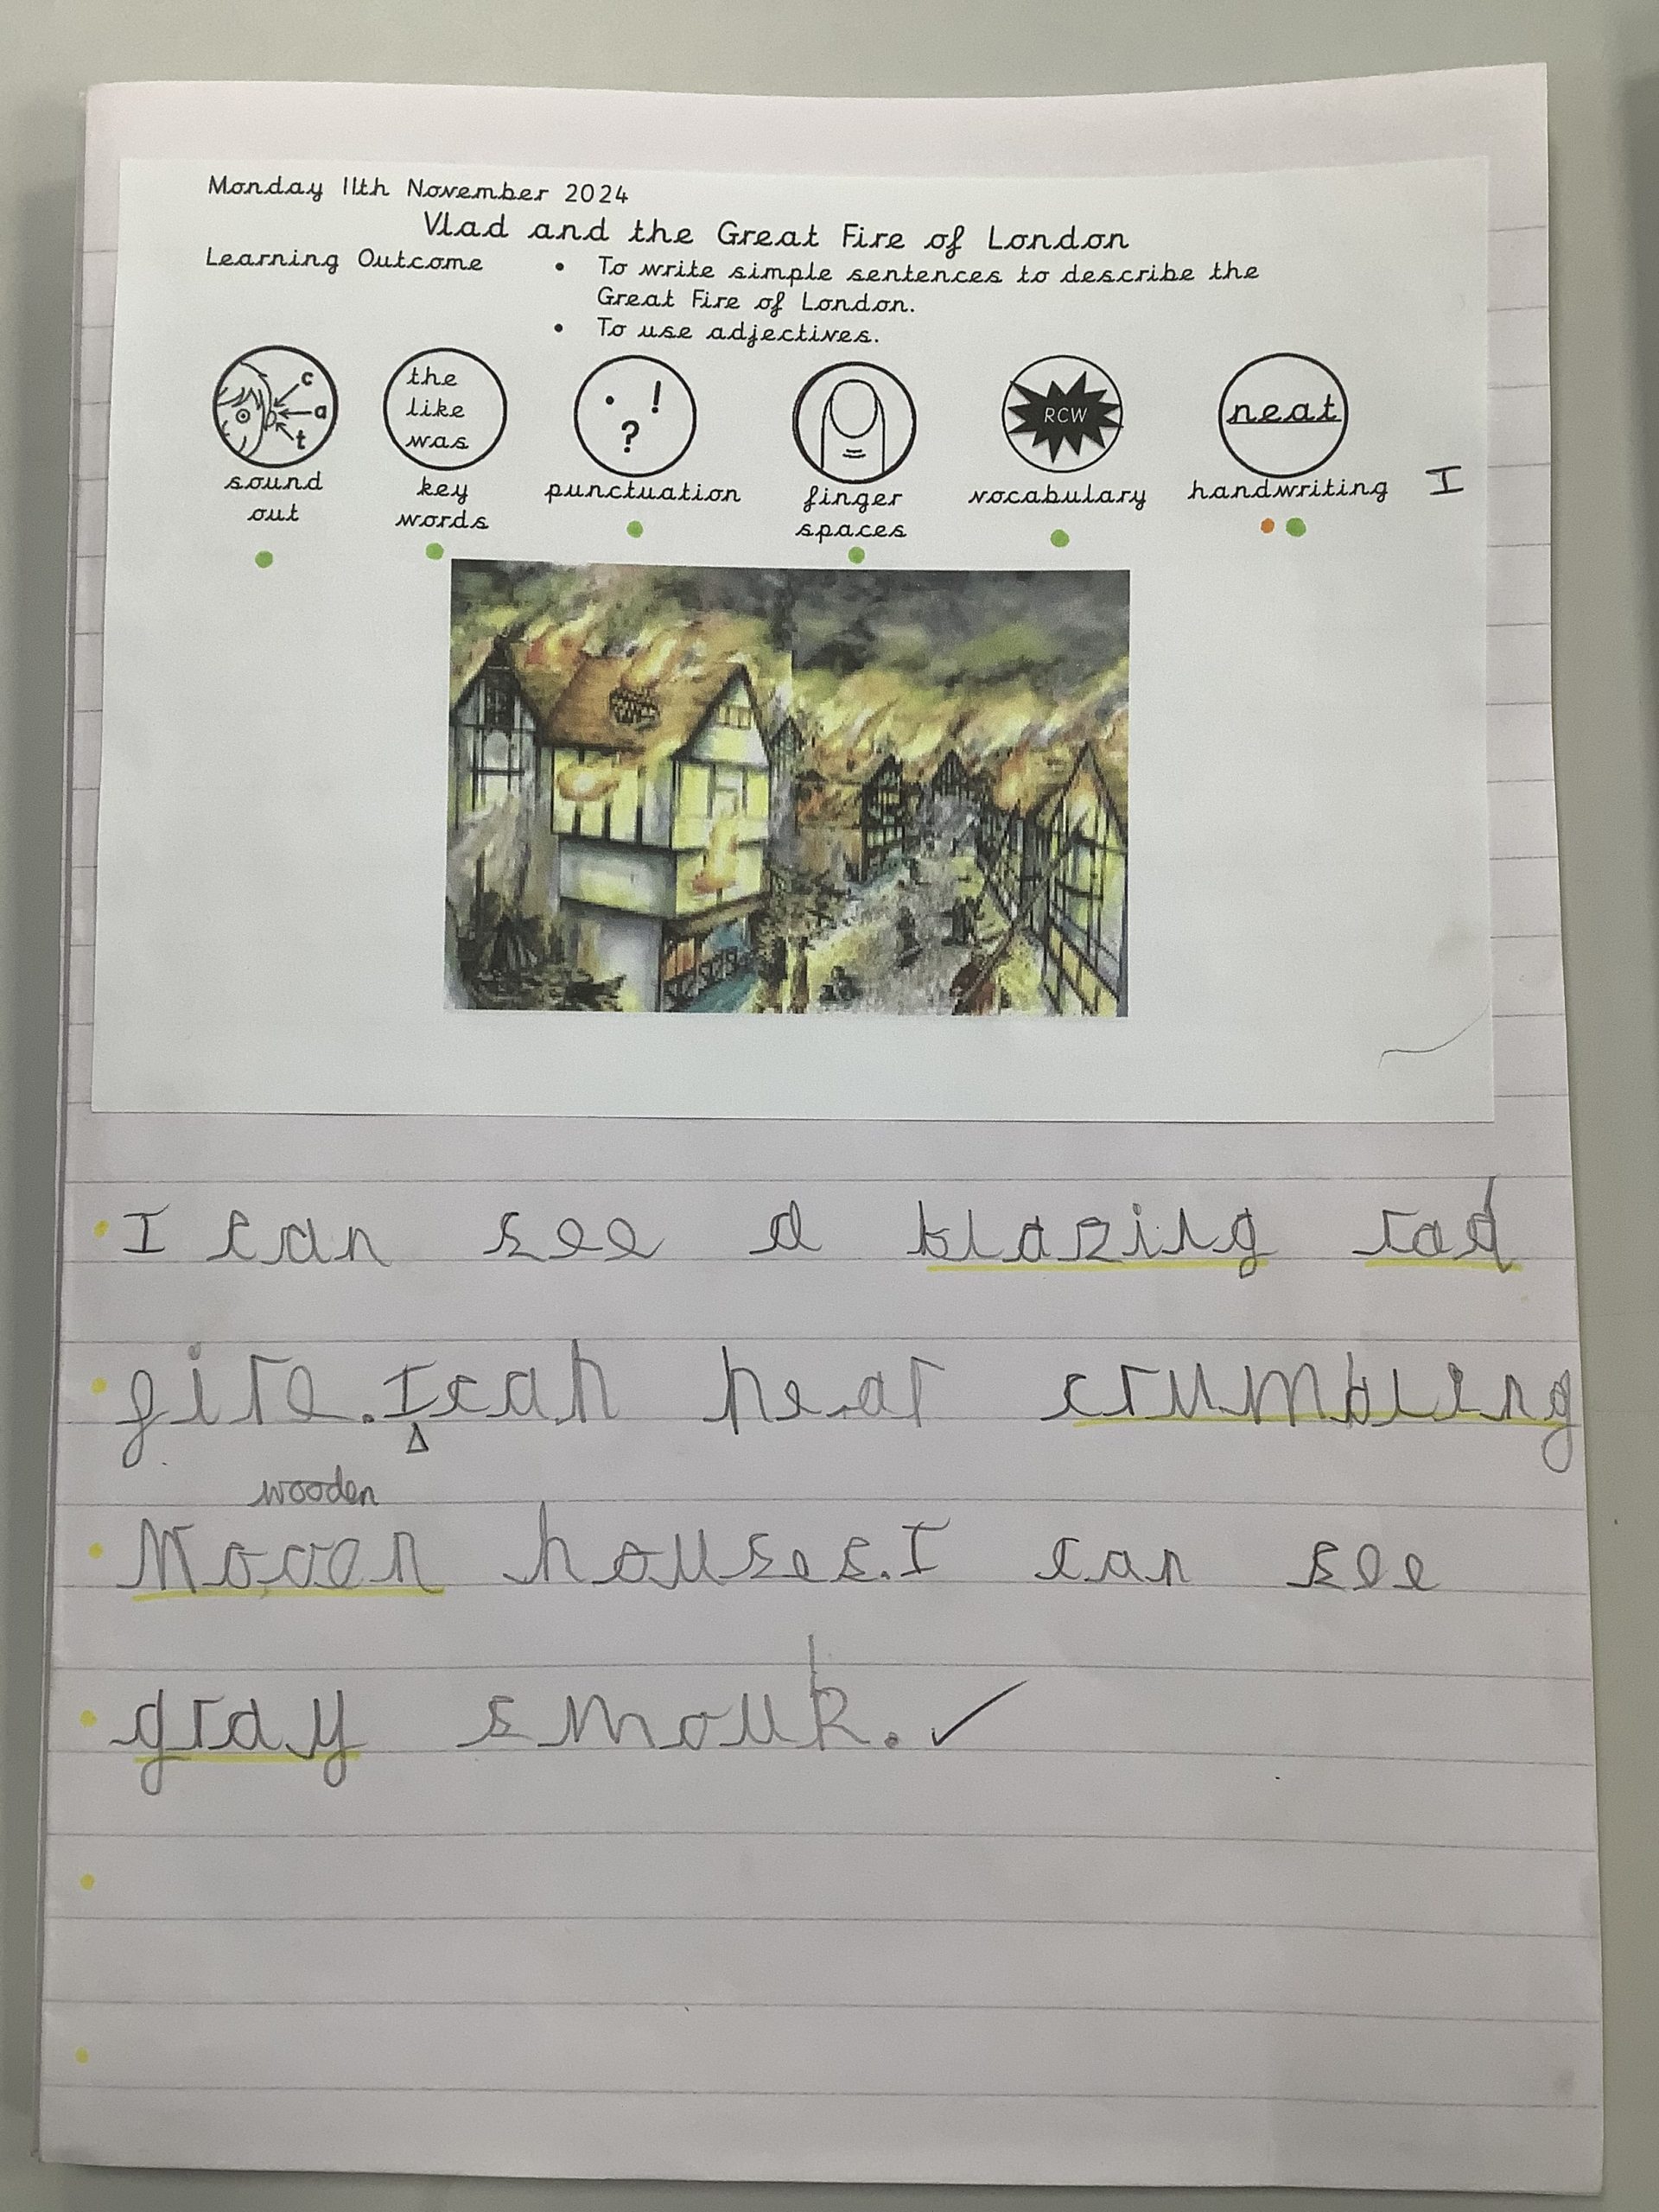 Monday 11th November 2024
Vlad and the Great Fire of London
Learning Outcome
• To write simple sentences to describe the
Great Fire of London.
• To use adjectives.
c
a
t
the
like
was
. !
?
RCW
neat
sound
out
key
words
punctuation
finger
spaces
vocabulary
handwriting
I
I can see a blazing rad
fire. Ican hear crumbling
wooden
Mooen houses. I can see
gray smouk. ✓